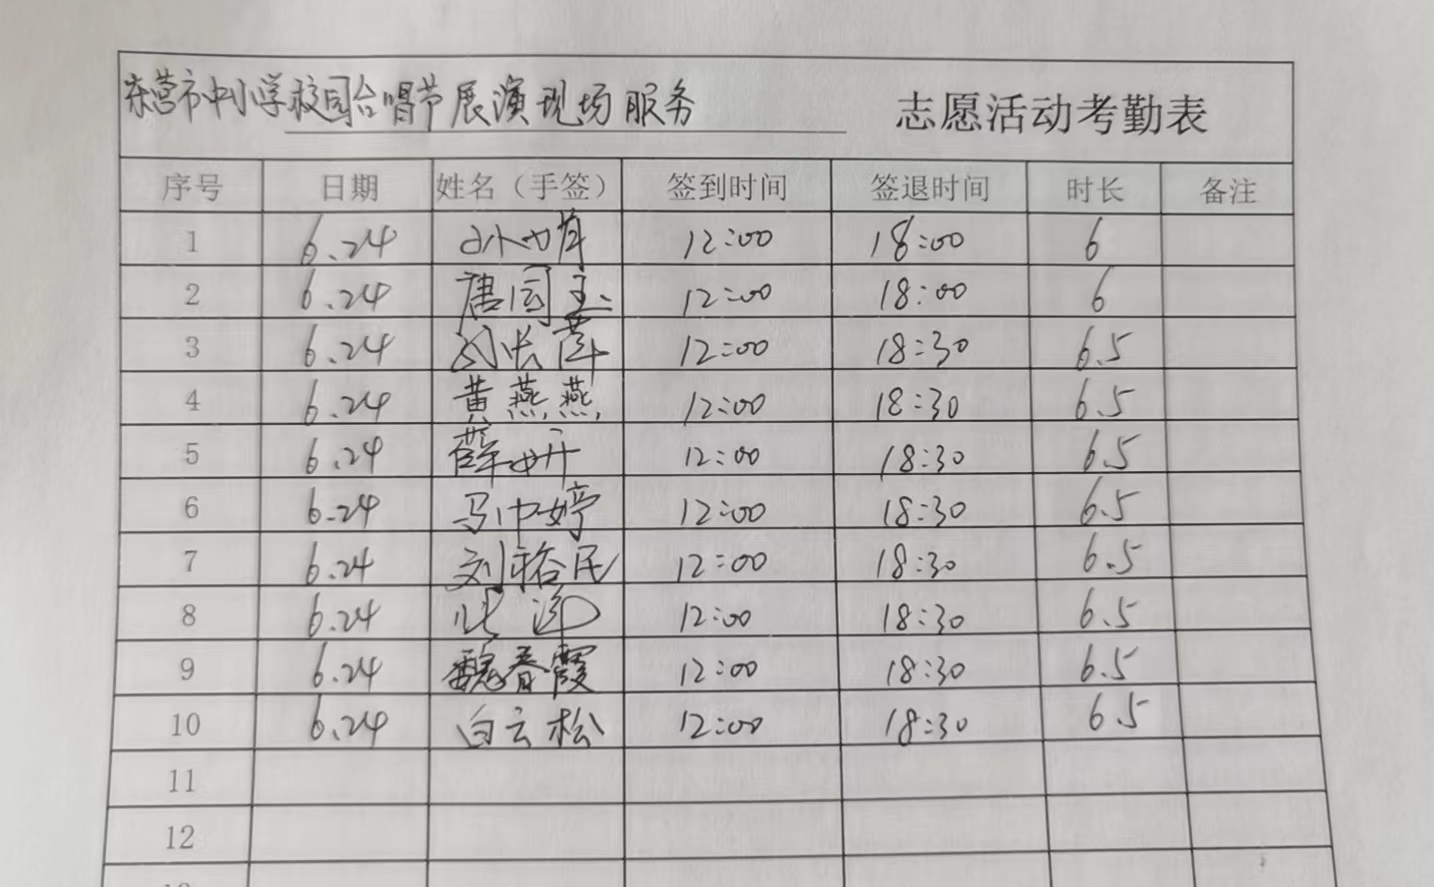 东营市中小学校园合唱节展演现场服务 志愿活动考勤表
序号 日期 姓名（手签） 签到时间 签退时间 时长 备注
1 6.24 12:00 18:00 6
2 6.24 唐国玉 12:00 18:00 6
3 6.24 12:00 18:30 6.5
4 6.24 黄燕燕 12:00 18:30 6.5
5 6.24 薛妍 12:00 18:30 6.5
6 6.24 12:00 18:30 6.5
7 6.24 刘裕民 12:00 18:30 6.5
8 6.24 12:00 18:30 6.5
9 6.24 魏春霞 12:00 18:30 6.5
10 6.24 白云松 12:00 18:30 6.5
11
12